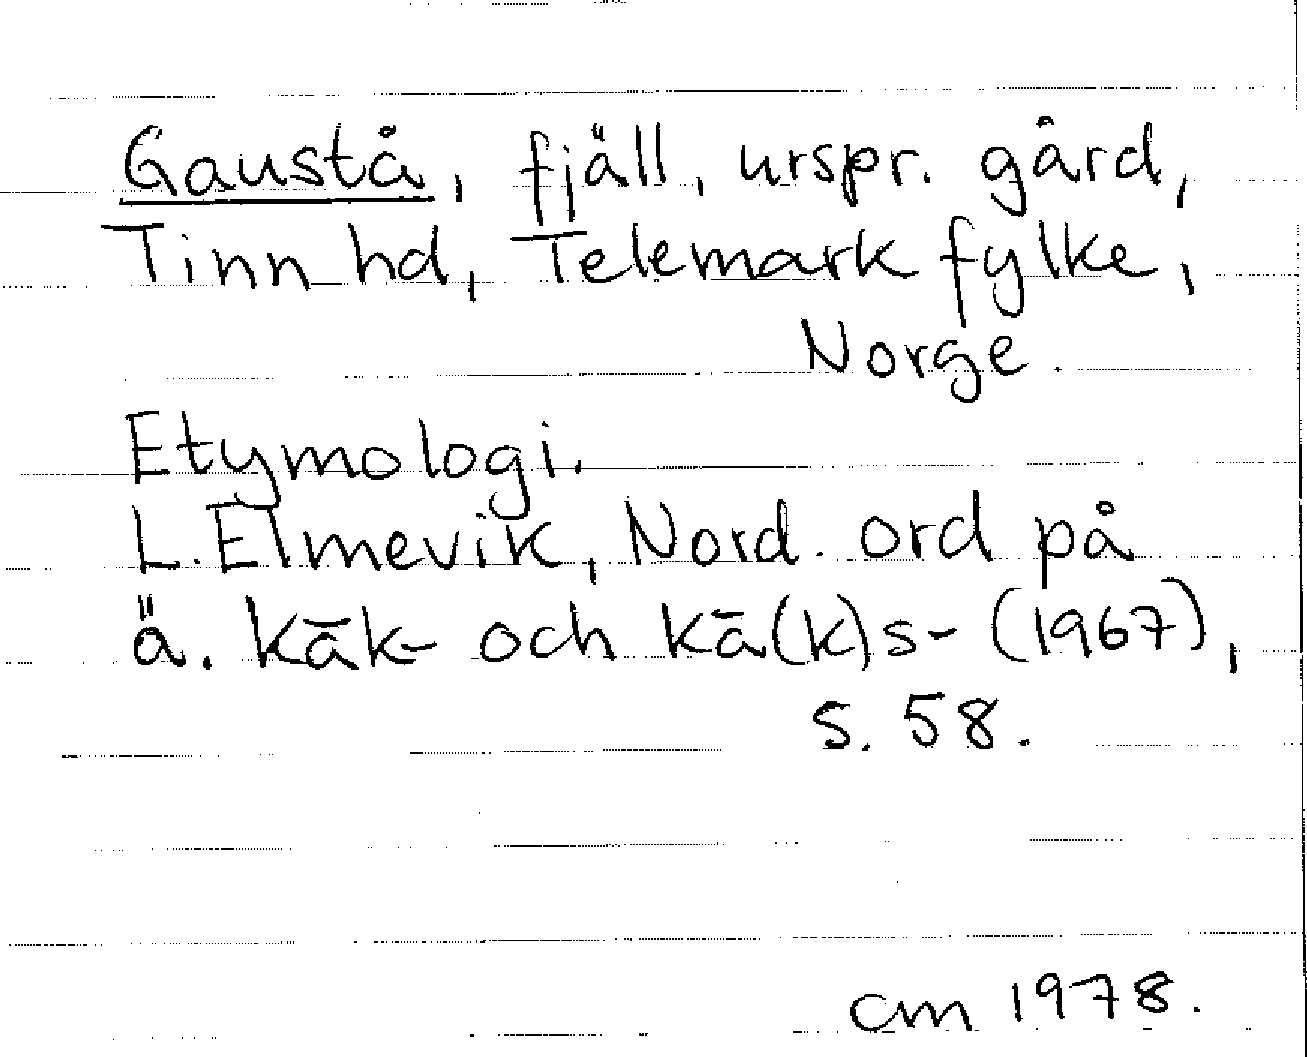 Gaustå, fjäll, urspr. gård,
Tinn hd, Telemark fylke,
Norge.
Etymologi.
L. Elmevik, Nord. ord på
ä. kāk- och kā(k)s- (1967),
s. 58.
cm 1978.